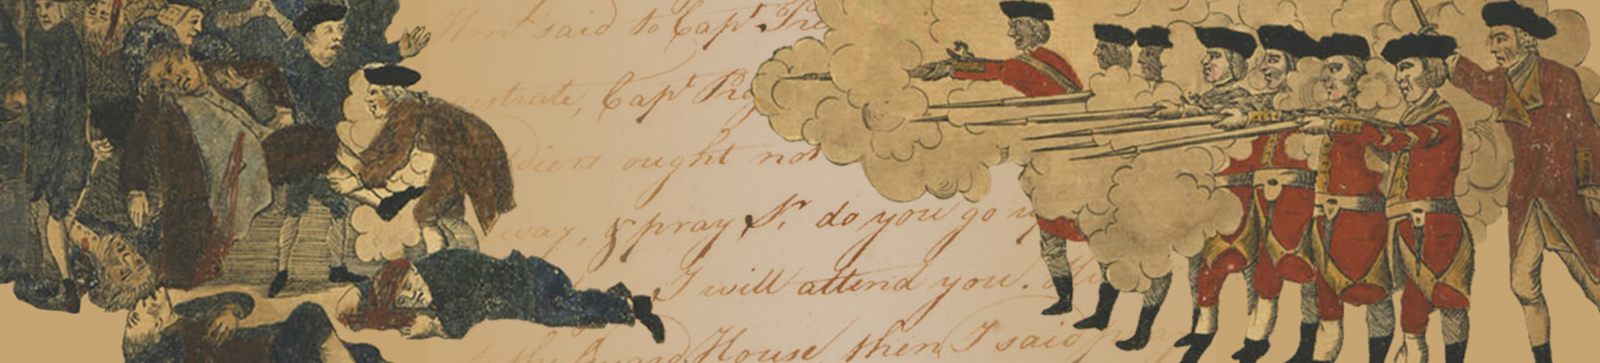 said to Capt Pre
Capt Pre
ought not
way, & pray Sr do you go
I will attend you.
Guard House then I said